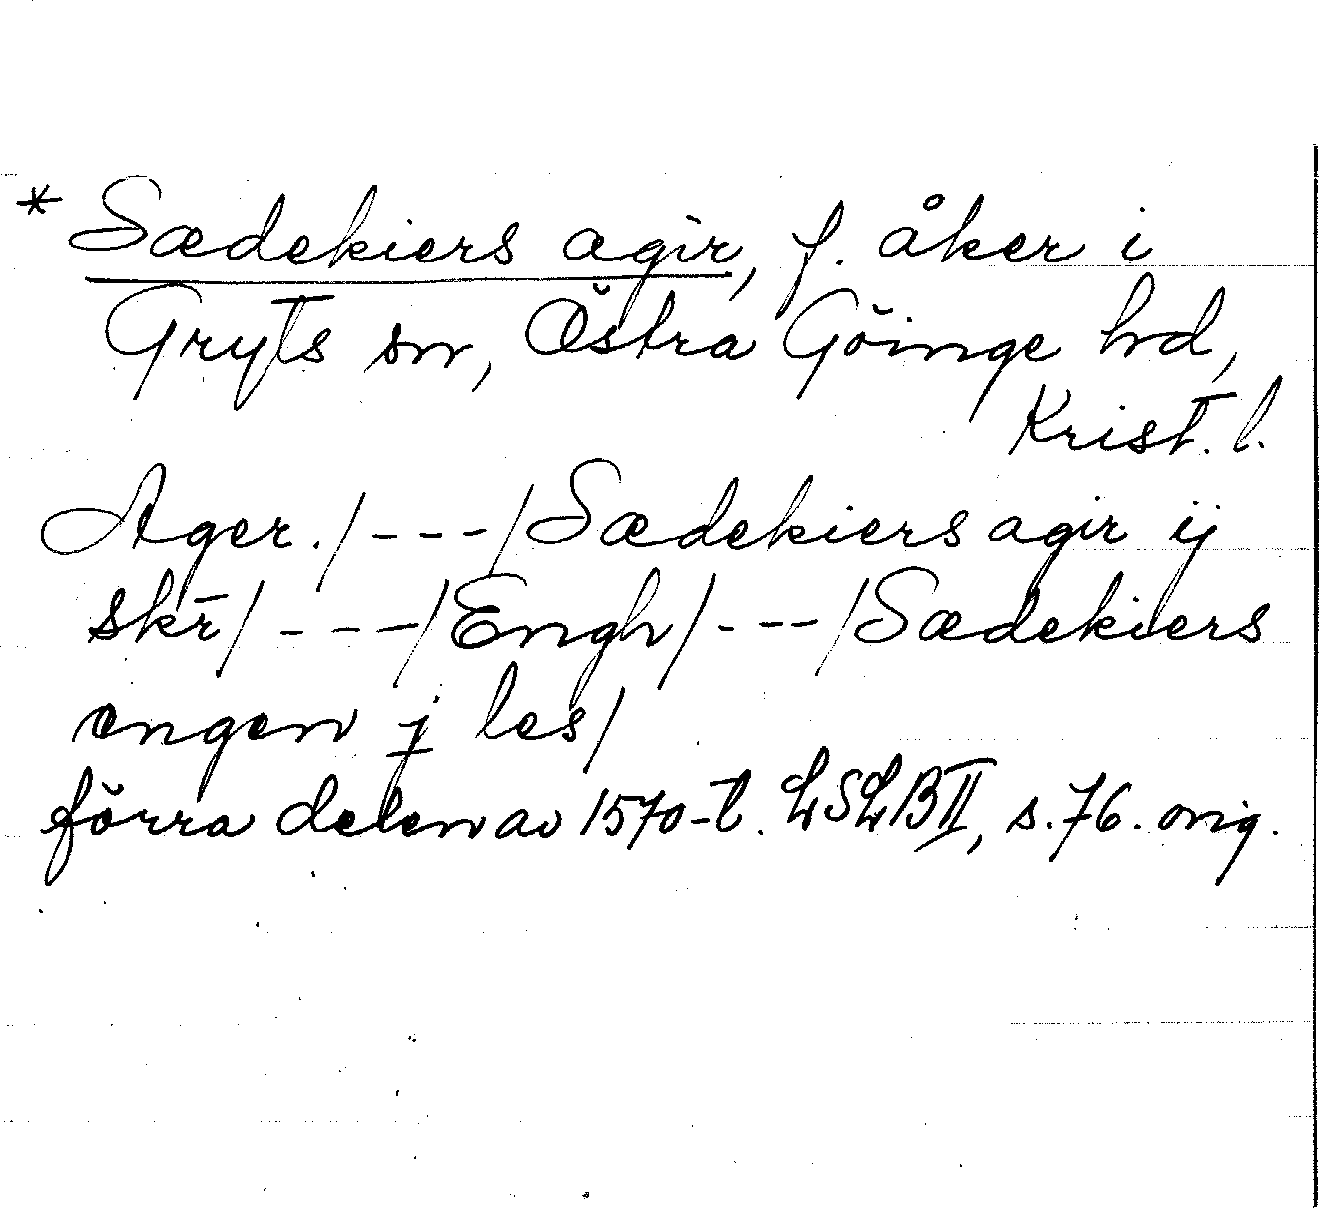 * Sædekiers agir, f. åker i
Gryts sn, Östra Göinge hd,
Krist. l.
Ager. /---/ Sædekiers agir ij
skr̄ /---/ Engh /---/ Sædekiers
engen j les/
förra delen av 1570-t. LSLB II, s. 76. orig.